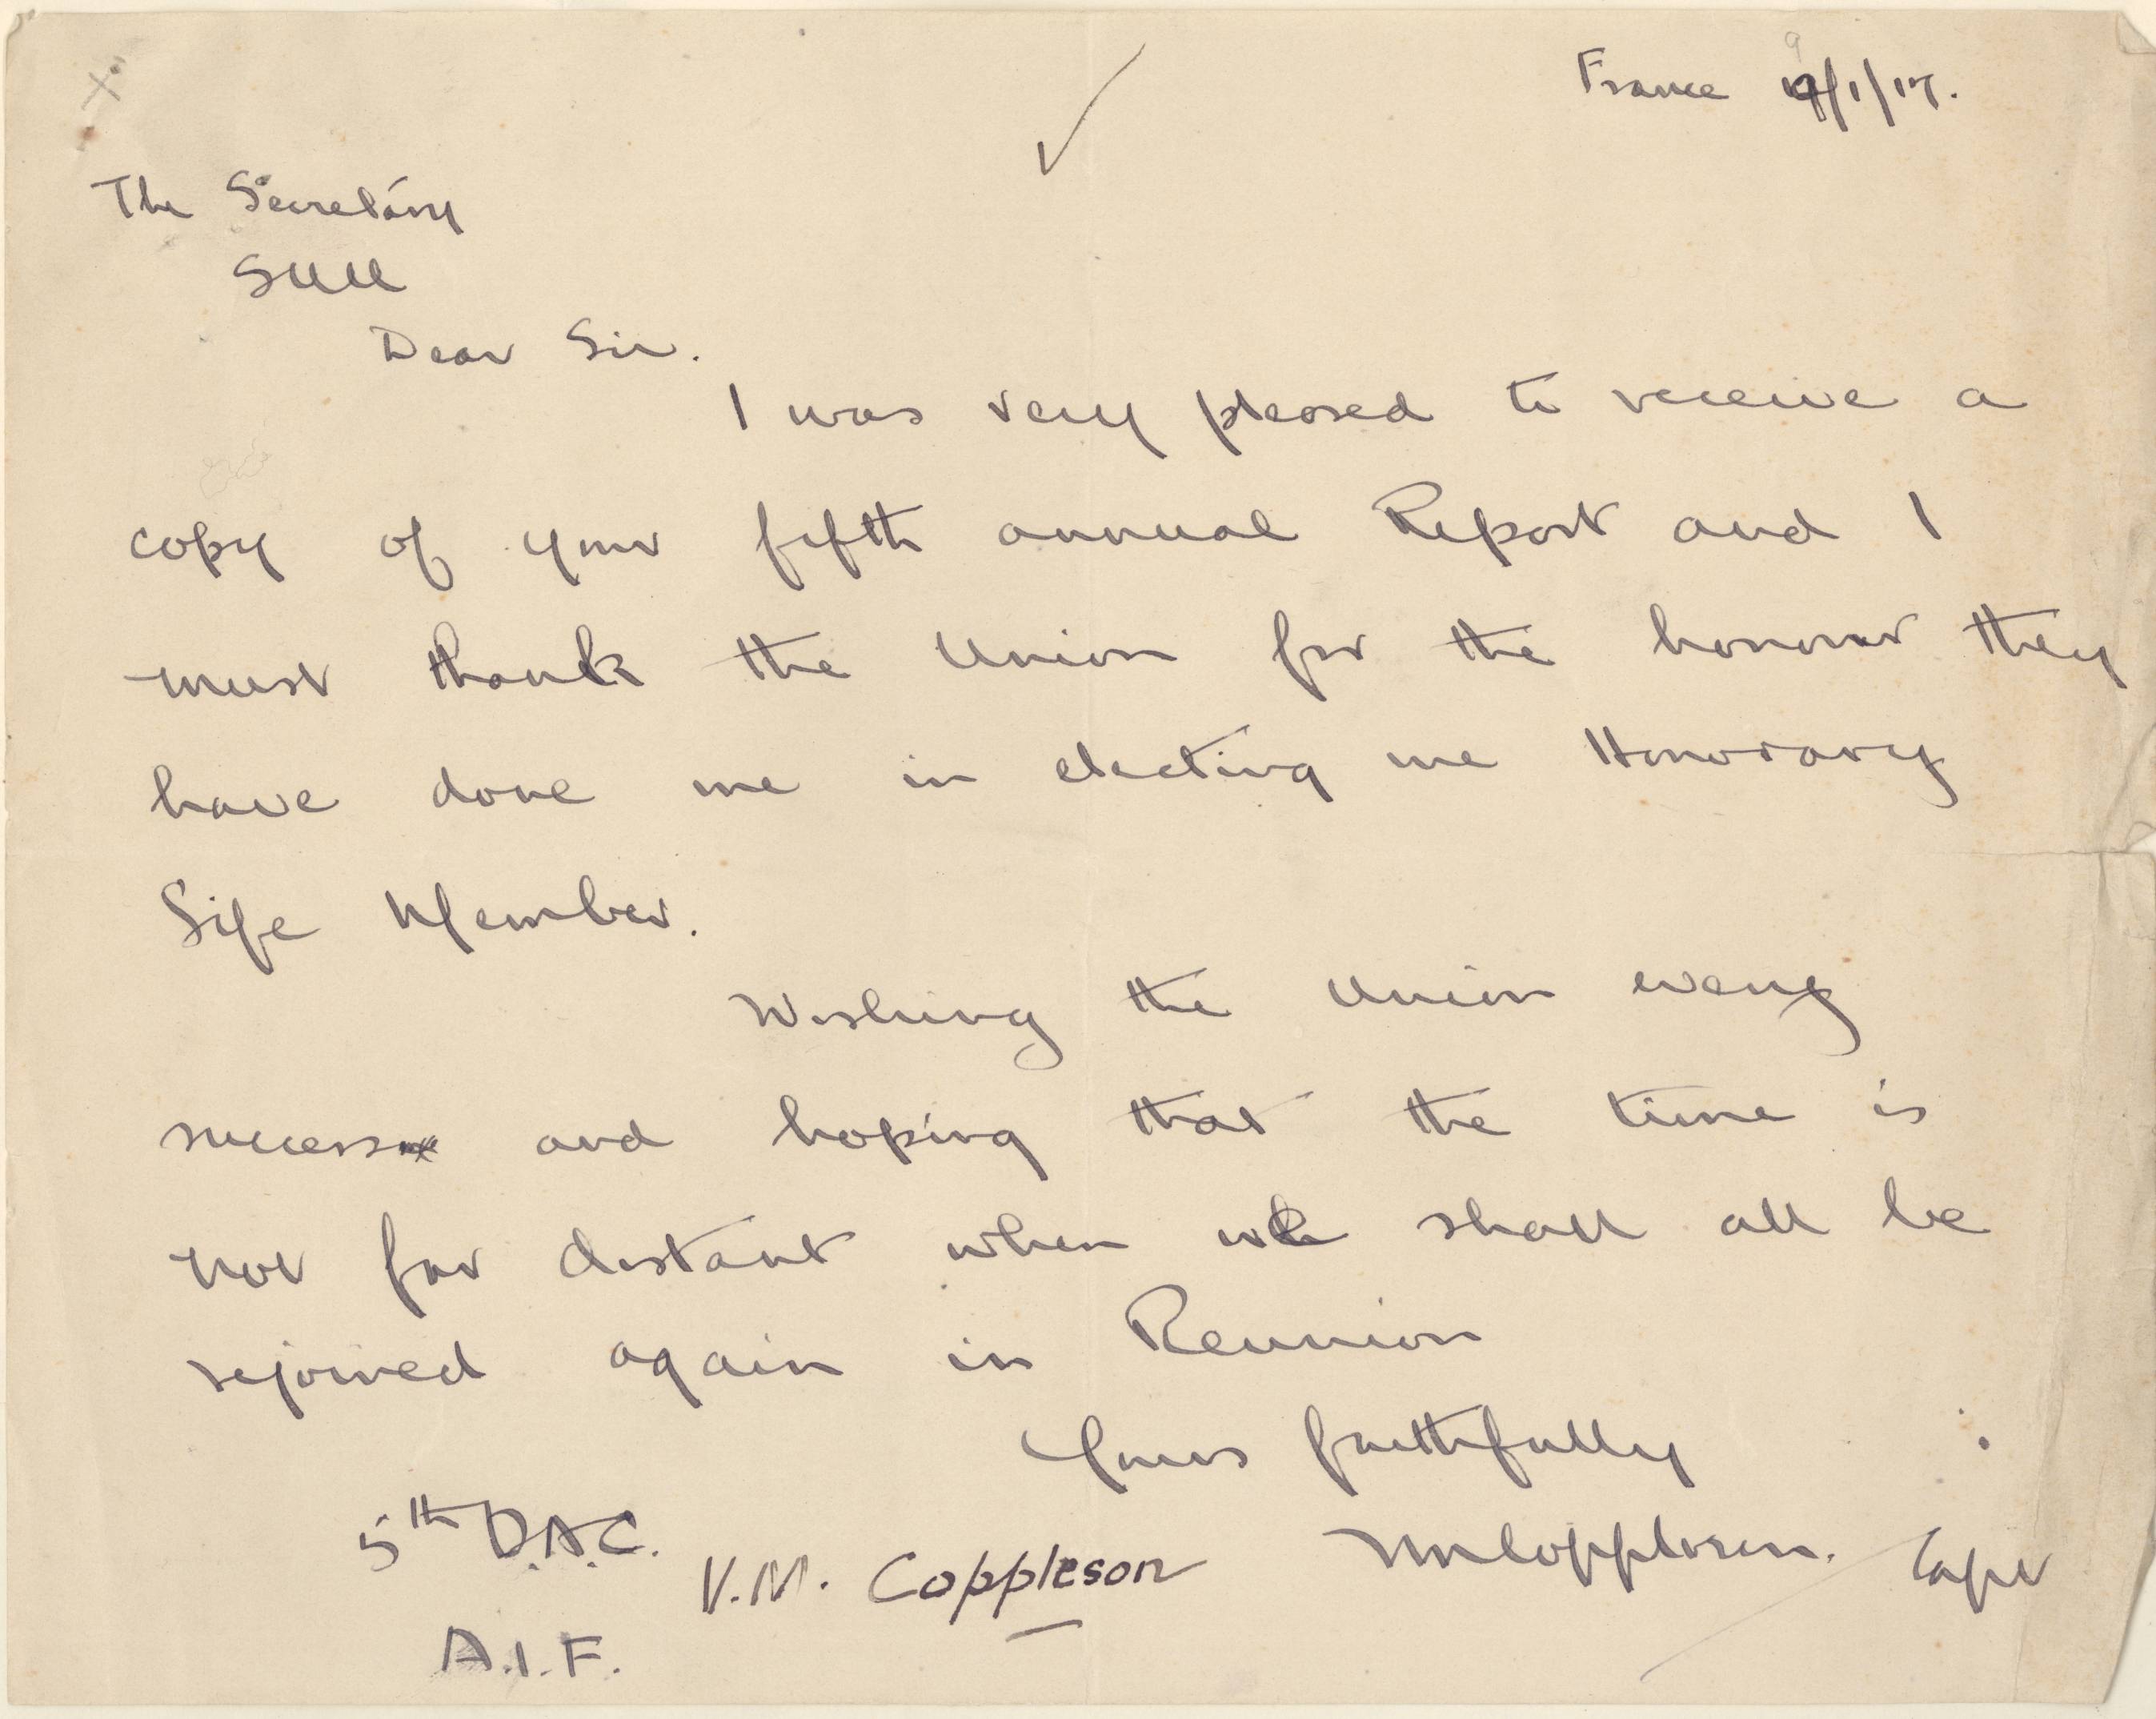 France 9/1/17.
The Secretary
SUU
Dear Sir.
I was very pleased to receive a
copy of your fifth annual Report and I
must thank the Union for the honour they
have done me in electing me Honorary
Life Member.
Wishing the Union every
success and hoping that the time is
not far distant when we shall all be
rejoined again in Reunion
Yours faithfully
VMCoppleson. Capt
5th D.A.C.
V.M. Coppleson
A.I.F.